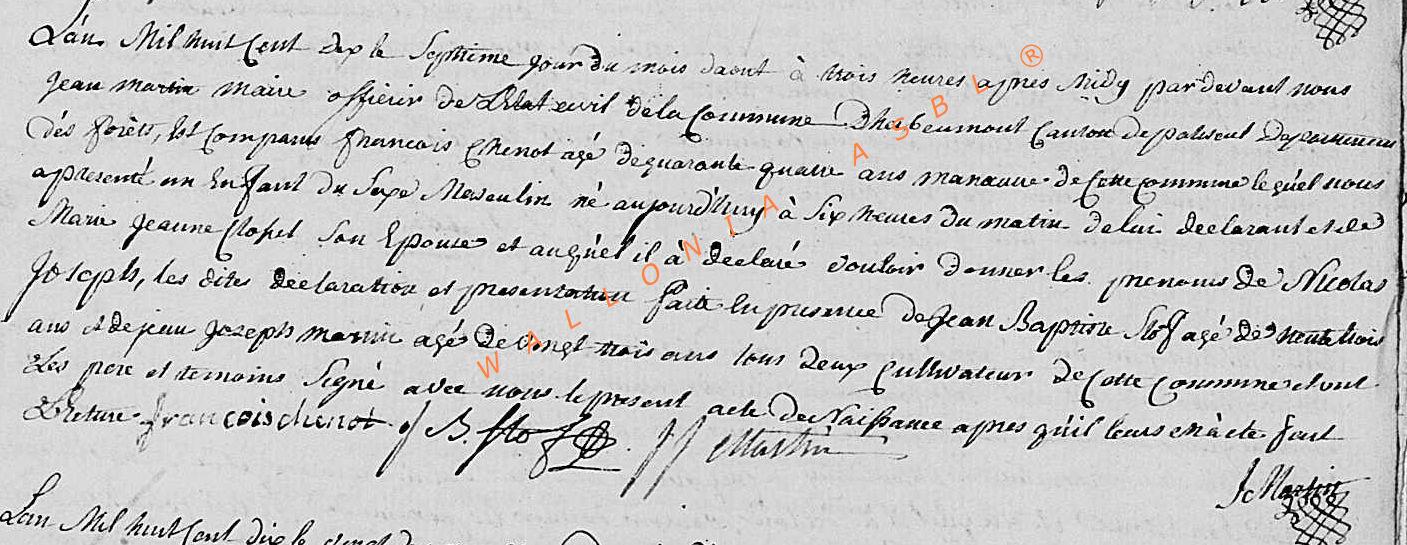 L'an Mil huit Cent dix le Septième jour du mois daout à trois heures apres midy par devant nous
Jean martin maire officier de L'Etat civil de la Commune Dherbeumont Canton de paliseul Departement
dés forêts, Est Comparus francois Chenot agé de quarante quatre ans manœuvre de Cette commune lequel nous
a presenté un Enfant du Sexe Masculin né aujourd'huy à Six heures du matin de lui declarant et de
Marie Jeanne Clofet Son Epouse et auquel il à declaré vouloir donner les prenoms de Nicolas
Joseph, les dites declaration et presentation faite En presence de Jean Baptiste Stof agé de trente trois
ans et de jean Joseph martin agé de vingt trois ans tous deux Cultivateur de Cette Commune et ont
Les pere et temoins Signé avec nous le present acte de Naissance apres qu'il leurs en à eté fait
Lecture. francois chenot J B. Stof J J Martin
J Martin
Lan Mil huit Cent dix le vingt
WALLONIA ASBL ®